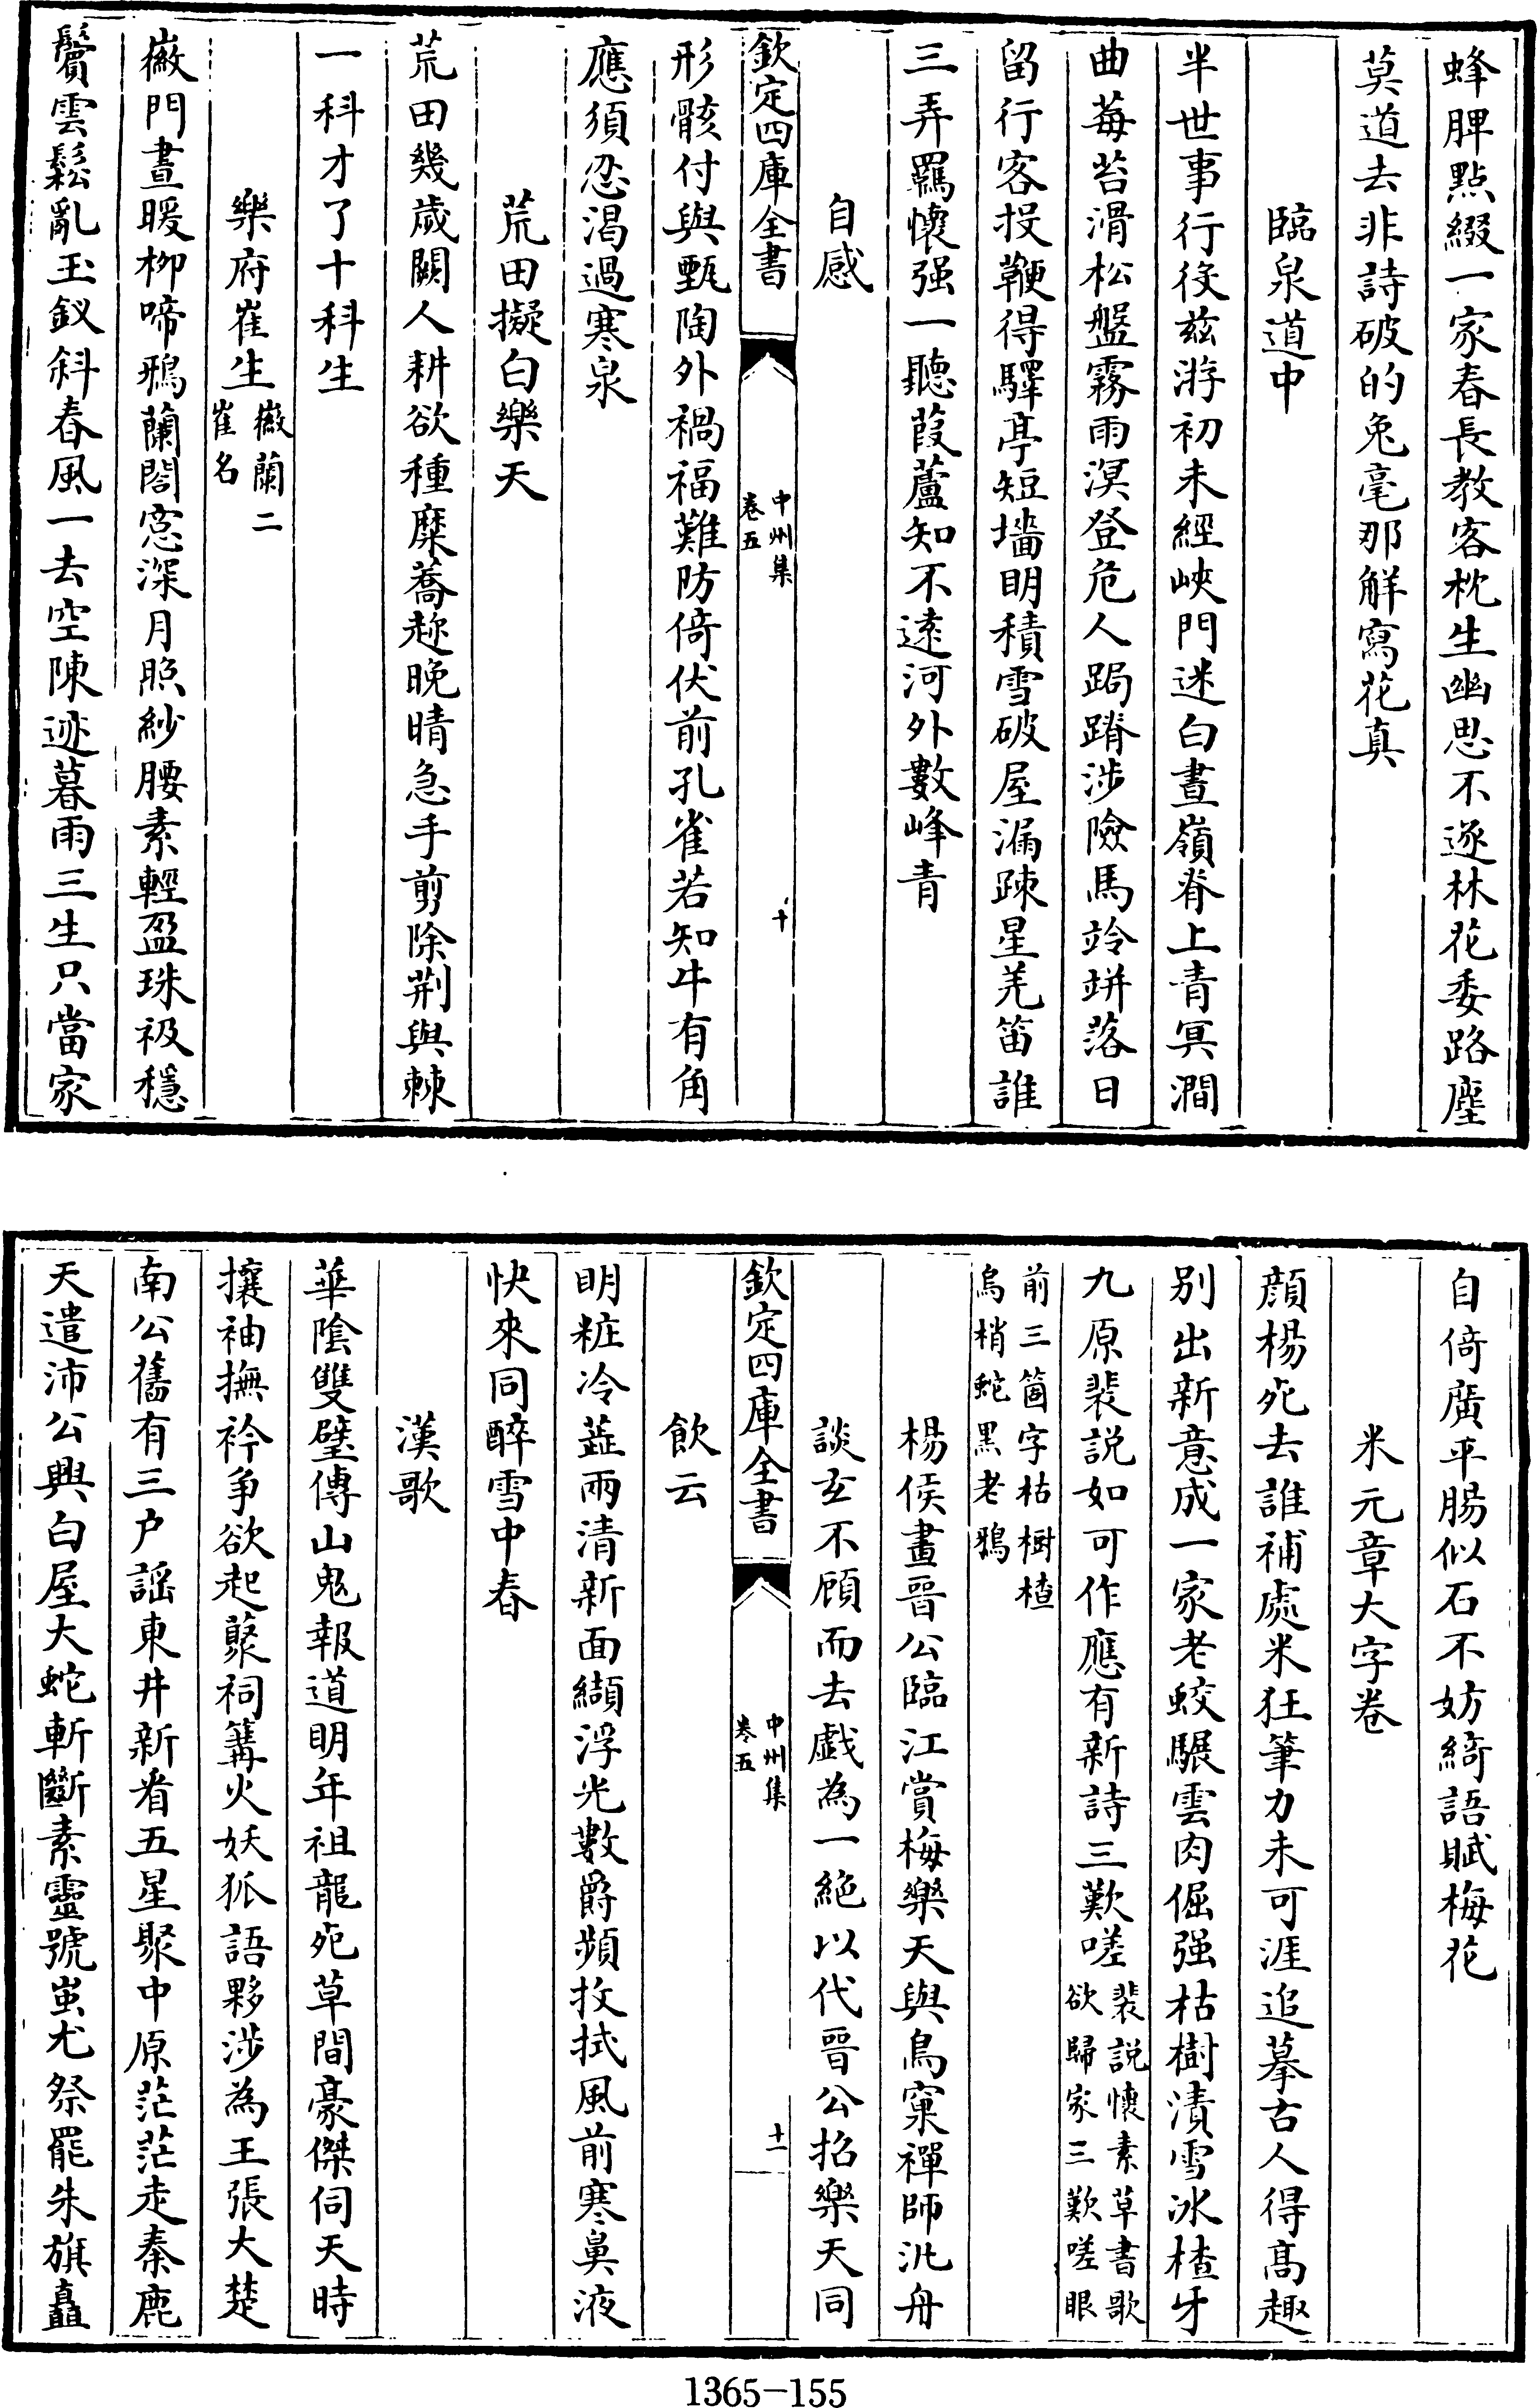 蜂脾㸃綴一家春長教客枕生幽思不逐林花委路塵
莫道去非詩破的兔毫那解寫花真
臨泉道中
半世事行役兹游初未經峽門迷白晝嶺脊上青冥澗
曲莓苔滑松盤霧雨溟登危人跼蹐涉險馬竛竮落日
留行客投鞭得驛亭短墻明積雪破屋漏疎星羌笛誰
三弄羈懷强一聽葭蘆知不逺河外數峰青
自感
欽定四庫全書
中州集
卷五
十
形骸付與甄陶外禍福難防倚伏前孔雀若知牛有角
應須忍渴過寒泉
荒田擬白樂天
荒田幾歲闕人耕欲種糜蕎趂晚晴急手剪除荆與棘
一科才了十科生
樂府崔生
㣲蘭二
崔名
㣲門晝暖栁啼鴉蘭閣窓深月照紗腰素輕盈珠衱穩
鬢雲鬆亂玉釵斜春風一去空陳迹暮雨三生只當家
自倚廣平腸似石不妨綺語賦梅花
米元章大字卷
顔楊死去誰補處米狂筆力未可涯追摹古人得髙趣
别出新意成一家老蛟騣雲肉倔强枯樹漬雪冰楂牙
九原裴説如可作應有新詩三歎嗟
裴説懷素草書歌
欲歸家三歎嗟眼
前三箇字枯樹楂
烏梢蛇黒老鴉
楊侯畫晉公臨江賞梅樂天與鳥窠禪師泛舟
談玄不顧而去戲為一絶以代晉公招樂天同
欽定四庫全書
中州集
卷五
十一
飲云
明粧冷蘸雨清新面纈浮光數爵頻抆拭風前寒鼻液
快來同醉雪中春
漢歌
華隂雙璧傳山鬼報道明年祖龍死草間豪傑伺天時
攘袖撫衿争欲起藂祠篝火妖狐語夥涉為王張大楚
南公舊有三户謡東井新看五星聚中原茫茫走秦鹿
天遣沛公興白屋大蛇斬斷素靈號蚩尤祭罷朱旗矗
1365-155